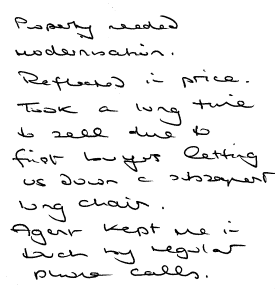 Property needed
modernisation.
Reflected in price.
Took a long time
to sell due to
first buyers letting
us down & subsequent
long chain.
Agent kept me in
touch by regular
phone calls.